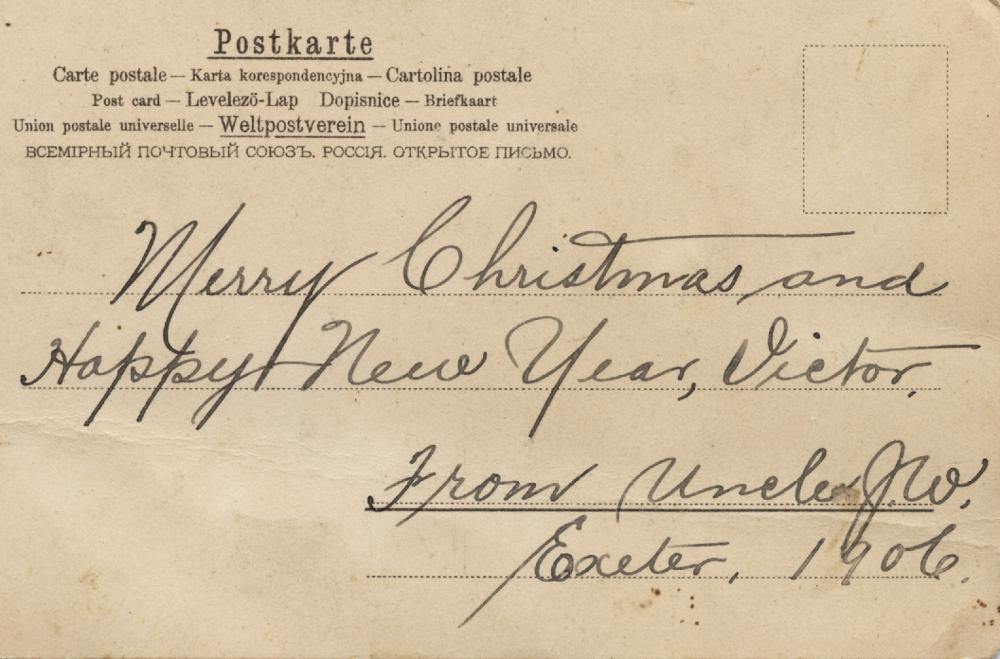 Postkarte
Carte postale — Karta korespondencyjna — Cartolina postale
Post card — Levelezö-Lap Dopisnice — Briefkaart
Union postale universelle — Weltpostverein — Unione postale universale
ВСЕМІРНЫЙ ПОЧТОВЫЙ СОЮЗЪ. РОССІЯ. ОТКРЫТОЕ ПИСЬМО.
Merry Christmas and
Happy New Year, Victor.
From Uncle J.W.
Exeter, 1906.